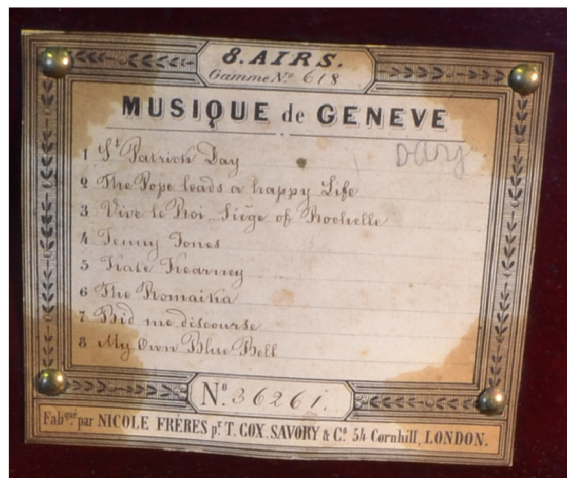 8. AIRS.
Gamme No. 618
MUSIQUE de GENEVE
1 St Patrick Day
2 The Pope leads a happy Life
3 Vive le Roi Siége of Rochelle
4 Jenny Jones
5 Kate Kearney
6 The Romaika
7 Bid me discourse
8 My Own Blue Bell
No. 36261.
Fabqué par NICOLE FRÈRES pr. T. COX. SAVORY & Co. 54 Cornhill, LONDON.